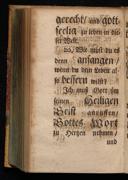 gerecht/ und gott-
seelig zu leben in die-
ser Welt.
Wie must du es
denn anfangen/
wann du dein Leben al-
so bessern willst?
Ich muß Gott um
seinen Heiligen
Geist anruffen/
Gottes Wort
zu Hertzen nehmen/
und